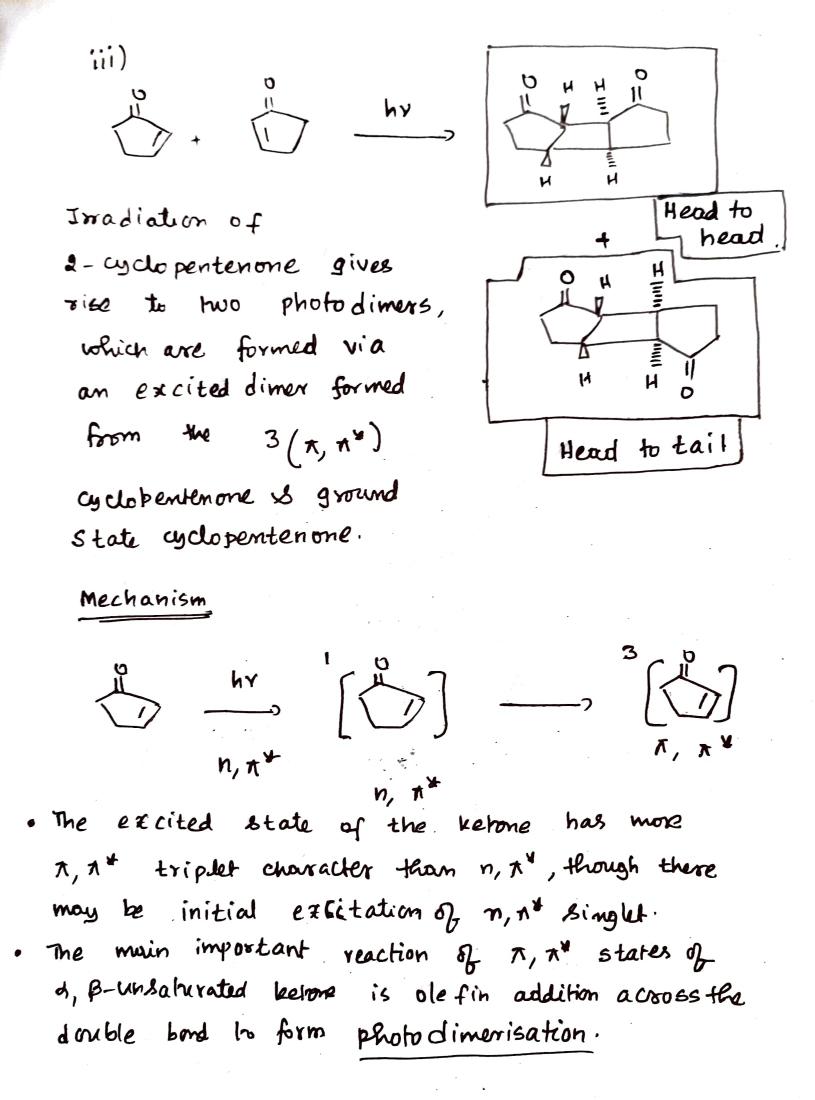 iii)
O
O
+
hν
O H H O
H H
Head to
head.
+
O H H
H H O
Head to tail
Irradiation of
2-cyclopentenone gives
rise to two photodimers,
which are formed via
an excited dimer formed
from the 3(π, π*)
cyclopentenone & ground
state cyclopentenone.
Mechanism
O
hν
n, π*
1 [ O ]
n, π*
3 [ O ]
π, π*
• The excited state of the ketone has more
π, π* triplet character than n, π*, though there
may be initial excitation of n, π* singlet.
• The main important reaction of π, π* states of
α, β-unsaturated ketone is olefin addition across the
double bond to form photodimerisation.